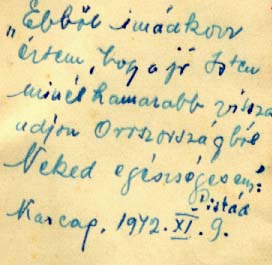 „Ebből imádkozz
értem, hogy a jó Isten
minél hamarabb vissza
adjon Oroszországból
Neked egészségesen:
Pistád
Karcag, 1942. XI. 9.